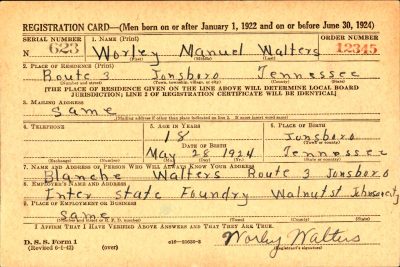 REGISTRATION CARD—(Men born on or after January 1, 1922 and on or before June 30, 1924)
SERIAL NUMBER 1. NAME (Print) ORDER NUMBER
N 623 Worley Manuel Walters 12345
(First) (Middle) (Last)
2. PLACE OF RESIDENCE (Print)
Route 3 Jonsboro Tennessee
(Number and street) (Town, township, village, or city) (County) (State)
[THE PLACE OF RESIDENCE GIVEN ON THE LINE ABOVE WILL DETERMINE LOCAL BOARD
JURISDICTION; LINE 2 OF REGISTRATION CERTIFICATE WILL BE IDENTICAL]
3. MAILING ADDRESS
Same
[Mailing address if other than place indicated on line 2. If same insert word same]
4. TELEPHONE 5. AGE IN YEARS 6. PLACE OF BIRTH
18 Jonsboro
DATE OF BIRTH (Town or county)
May 28 1924 Tennessee
(Exchange) (Number) (Mo.) (Day) (Yr.) (State or country)
7. NAME AND ADDRESS OF PERSON WHO WILL ALWAYS KNOW YOUR ADDRESS
Blanche Walters Route 3 Jonsboro
8. EMPLOYER'S NAME AND ADDRESS
Inter state Foundry Walnutst Johnsoncity
9. PLACE OF EMPLOYMENT OR BUSINESS
Same
(Number and street or R. F. D. number) (Town) (County) (State)
I AFFIRM THAT I HAVE VERIFIED ABOVE ANSWERS AND THAT THEY ARE TRUE.
D. S. S. Form 1
(Revised 6-1-42) (over) Worley Walters
(Registrant's signature)